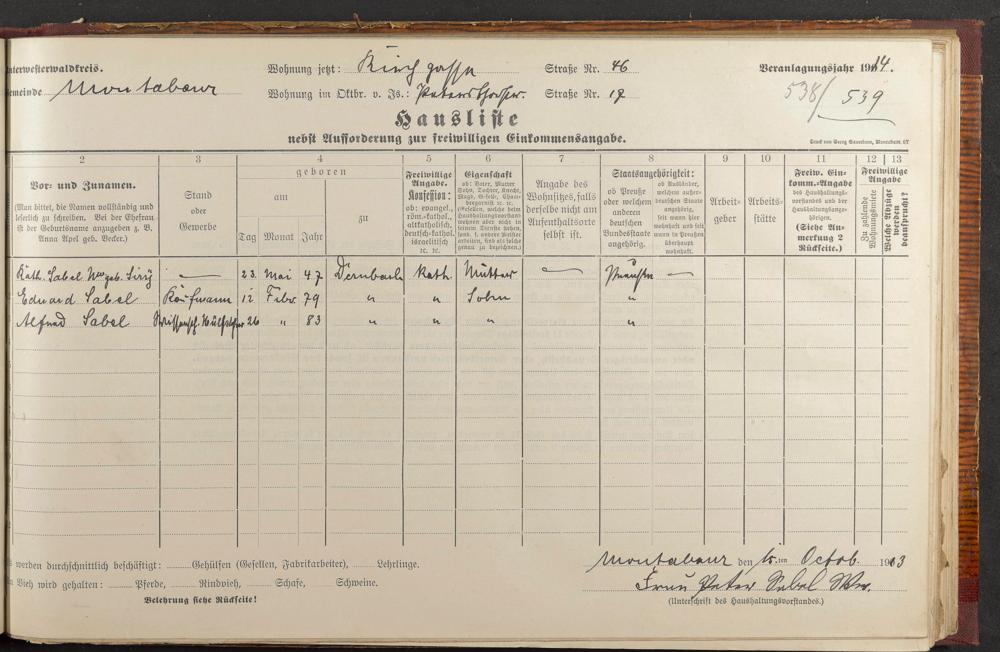 nterwesterwaldkreis.
Wohnung jetzt: Kirchgasse Straße Nr. 46
Veranlagungsjahr 1914.
emeinde Montabaur
Wohnung im Oktbr. v. Js.: Straße Nr. 17
538/539
Hausliste
nebst Aufforderung zur freiwilligen Einkommensangabe.
Druck von Georg Sauerborn, Montabaur.
2 3 4 5 6 7 8 9 10 11 12 13
Vor- und Zunamen.
(Man bittet, die Namen vollständig und
leserlich zu schreiben. Bei der Ehefrau
ist der Geburtsname anzugeben z. B.
Anna Apel geb. Becker.)
Stand
oder
Gewerbe
geboren
am
zu
Tag Monat Jahr
Freiwillige
Angabe.
Konfession:
ob: evangel.,
röm.-kathol.,
altkatholisch,
deutsch-kathol.
israelitisch
ꝛc. ꝛc.
Eigenschaft
ob: Vater, Mutter
Sohn, Tochter, Knecht,
Magd, Geselle, Cham-
bregarnist ꝛc. ꝛc.
(Gesellen, welche beim
Haushaltungsvorstand
wohnen aber nicht in
seinem Dienste stehen,
sind als solche
genau zu bezeichnen.)
Angabe des
Wohnsitzes, falls
derselbe nicht am
Aufenthaltsorte
selbst ist.
Staatsangehörigkeit:
ob Preuße
oder welchem
anderen
deutschen
Bundesstaate
angehörig.
ob Ausländer,
welchem außer-
deutschen Staate
angehörig,
seit wann hier
wohnhaft und
seit wann in Preußen
überhaupt
wohnhaft.
Arbeit-
geber
Arbeits-
stätte
Freiw. Ein-
komm.-Angabe
des Haushaltungs-
vorstandes und der
Haushaltungsange-
hörigen.
(Siehe An-
merkung 2
Rückseite.)
Freiwillige
Angabe
Zu zahlende
Wohnungsmiete
Welche Abzüge
werden
beansprucht?
Kath. Sabel Wwe geb. — 23. Mai 47 Dernbach kath. Mutter — Preußen —
Eduard Sabel Kaufmann 12 Febr 79 " " Sohn "
Alfred Sabel 26 " 83 " " " "
s werden durchschnittlich beschäftigt: Gehülfen (Gesellen, Fabrikarbeiter), Lehrlinge.
n Vieh wird gehalten: Pferde, Rindvieh, Schafe, Schweine.
Belehrung siehe Rückseite!
Montabaur den ten Octob. 1913
Frau Peter Sabel Ww.
(Unterschrift des Haushaltungsvorstandes.)